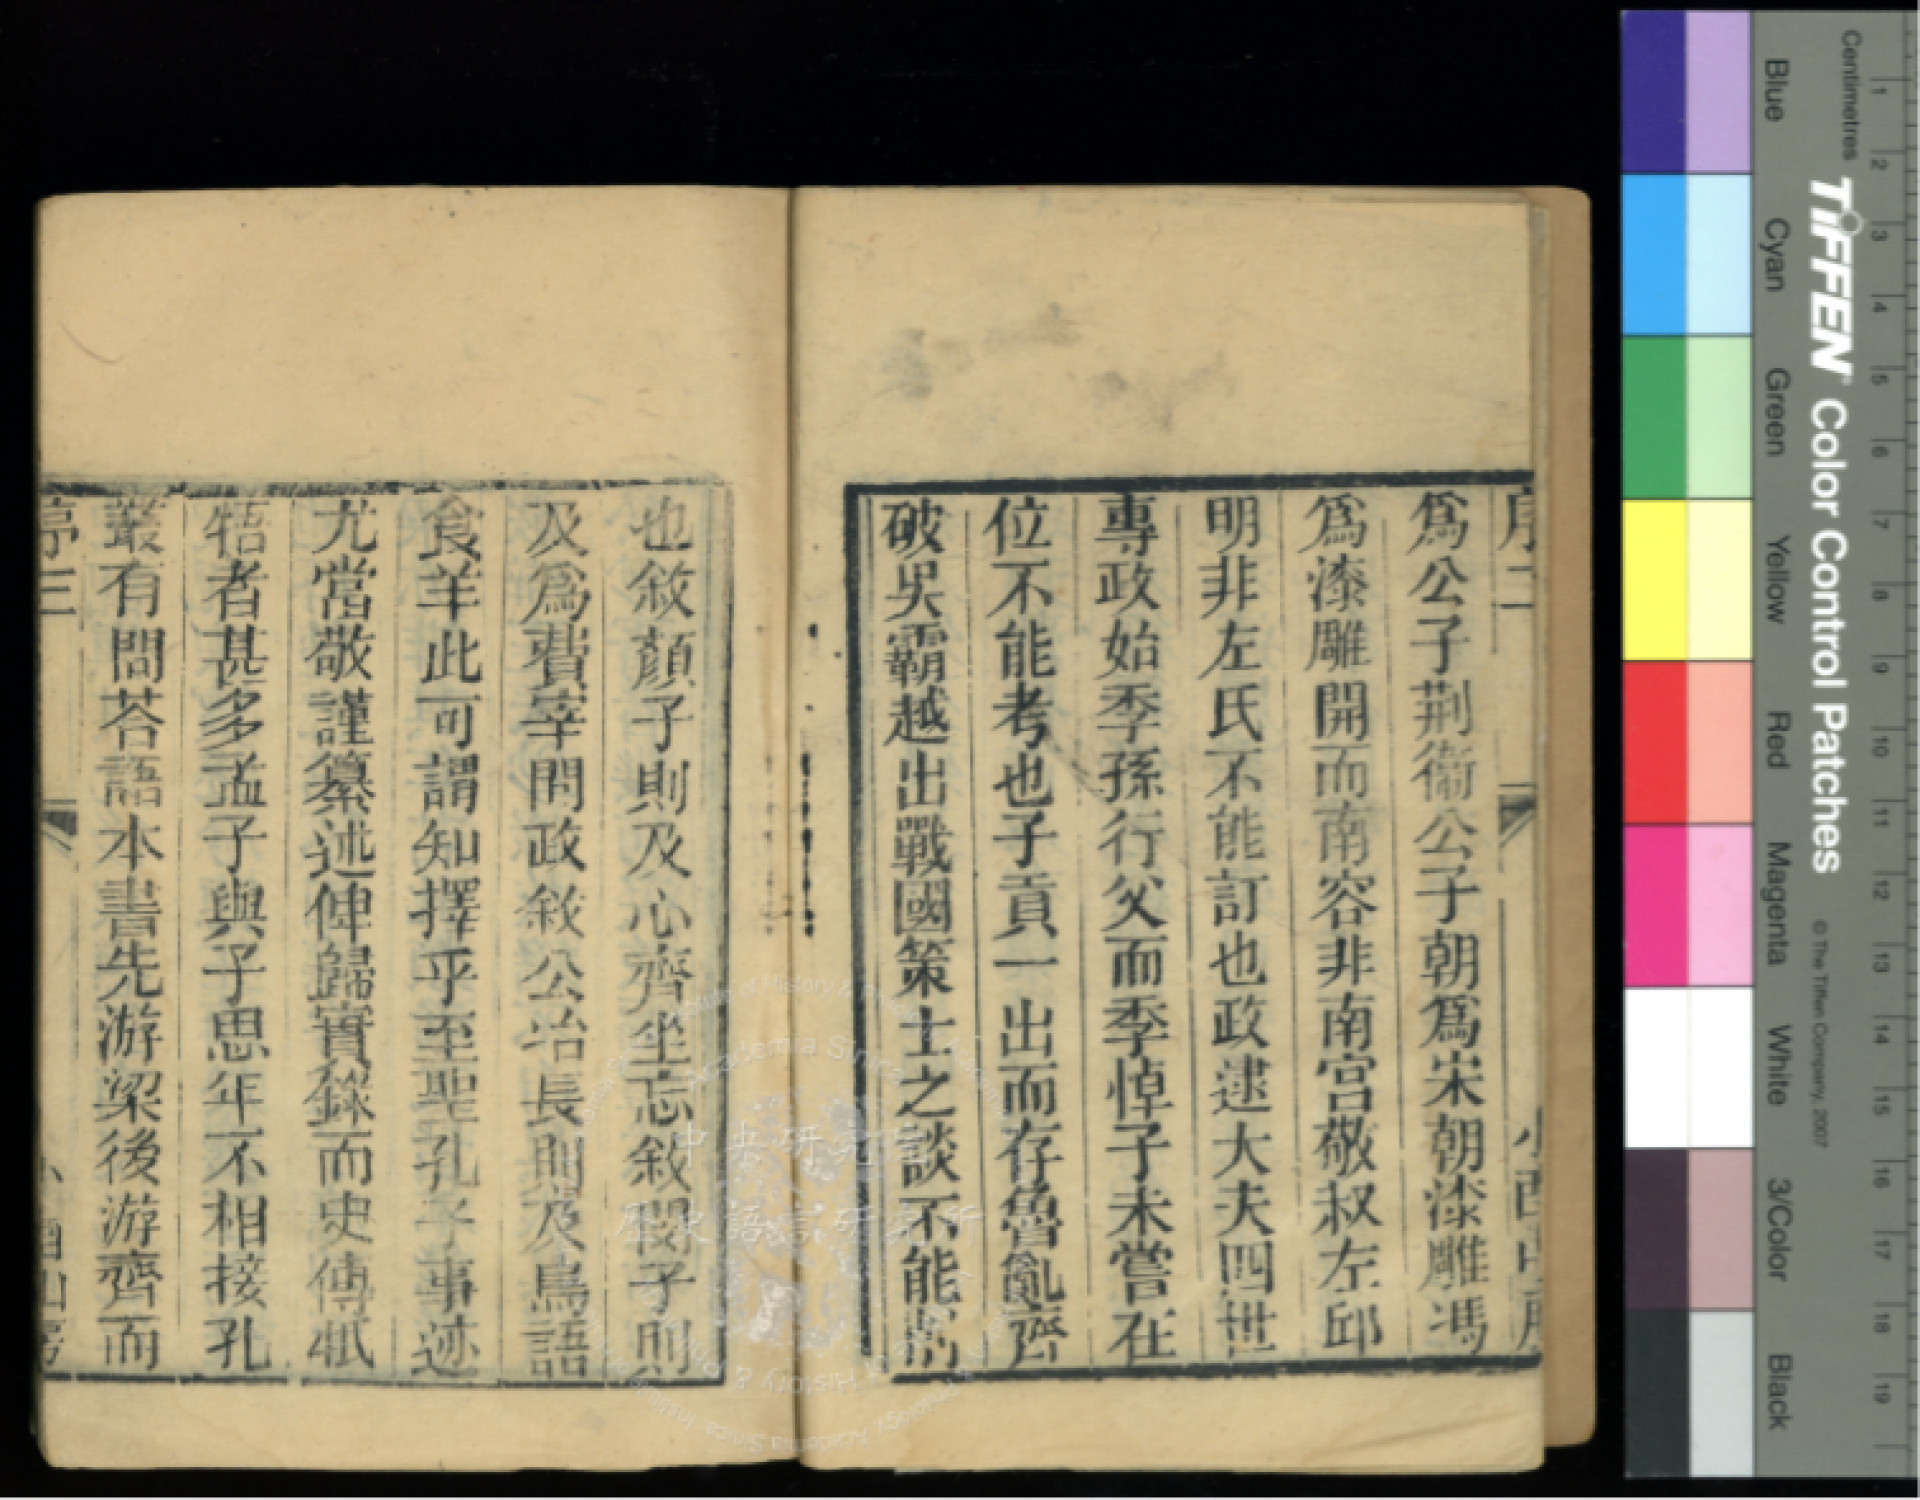 序二
爲公子荆衞公子朝爲宋朝漆雕馮
爲漆雕開而南容非南宫敬叔左邱
明非左氏不能訂也政逮大夫四世
專政始季孫行父而季悼子未嘗在
位不能考也子貢一出而存魯亂齊
破吳霸越出戰國策士之談不能
也敘顏子則及心齊坐忘敘閔子則
及爲費宰問政敘公冶長則及鳥語
食羊此可謂知擇乎至聖孔子事迹
尤當敬謹纂述俾歸實錄而史傳牴
牾者甚多孟子與子思年不相接孔
叢有問荅語本書先游梁後游齊而
三
山房
中央研究院
歷史語言研究所
Academia Sinica
Centimetres
1 2 3 4 5 6 7 8 9 10 11 12 13 14 15 16 17 18 19
TIFFEN Color Control Patches
© The Tiffen Company, 2007
Blue
Cyan
Green
Yellow
Red
Magenta
White
3/Color
Black